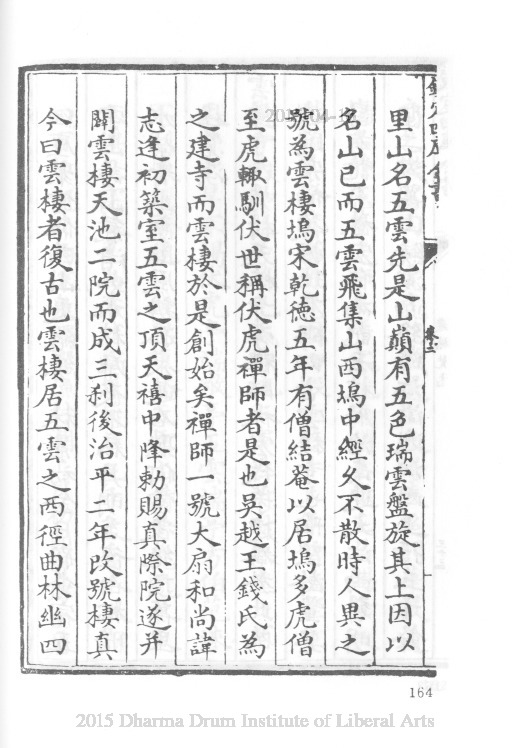 里山名五雲先是山巔有五色瑞雲盤旋其上因以
名山已而五雲飛集山西塢中經久不散時人異之
號為雲棲塢宋乾德五年有僧結菴以居塢多虎僧
至虎輙馴伏世稱伏虎禪師者是也吳越王錢氏為
之建寺而雲棲於是創始矣禪師一號大扇和尚諱
志逢初築室五雲之頂天禧中降勅賜真際院遂并
闢雲棲天池二院而成三剎後治平二年改號棲真
今曰雲棲者復古也雲棲居五雲之西徑曲林幽四
164
2015 Dharma Drum Institute of Liberal Arts